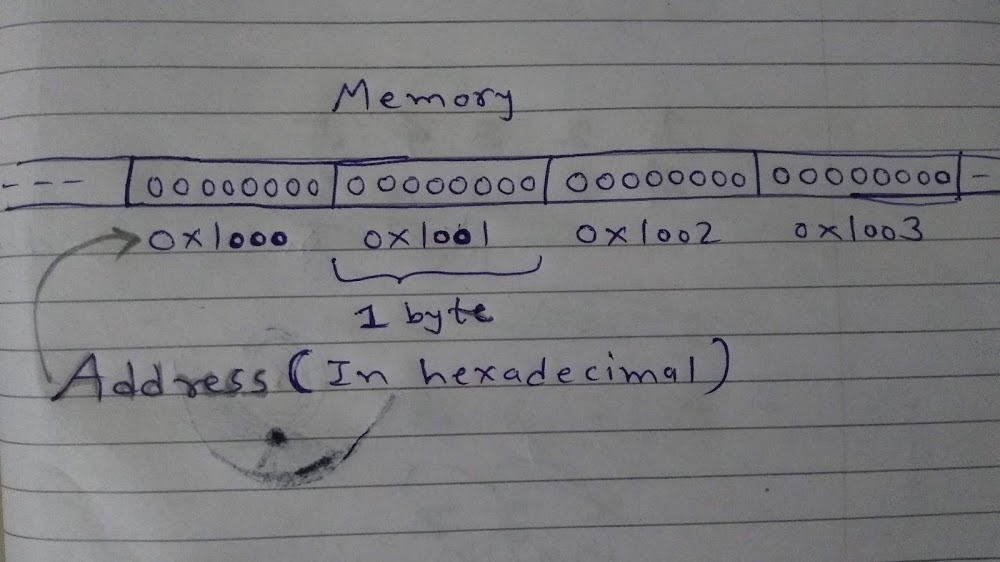 Memory
--- 00000000 00000000 00000000 00000000 -
0x1000 0x1001 0x1002 0x1003
1 byte
Address (In hexadecimal)